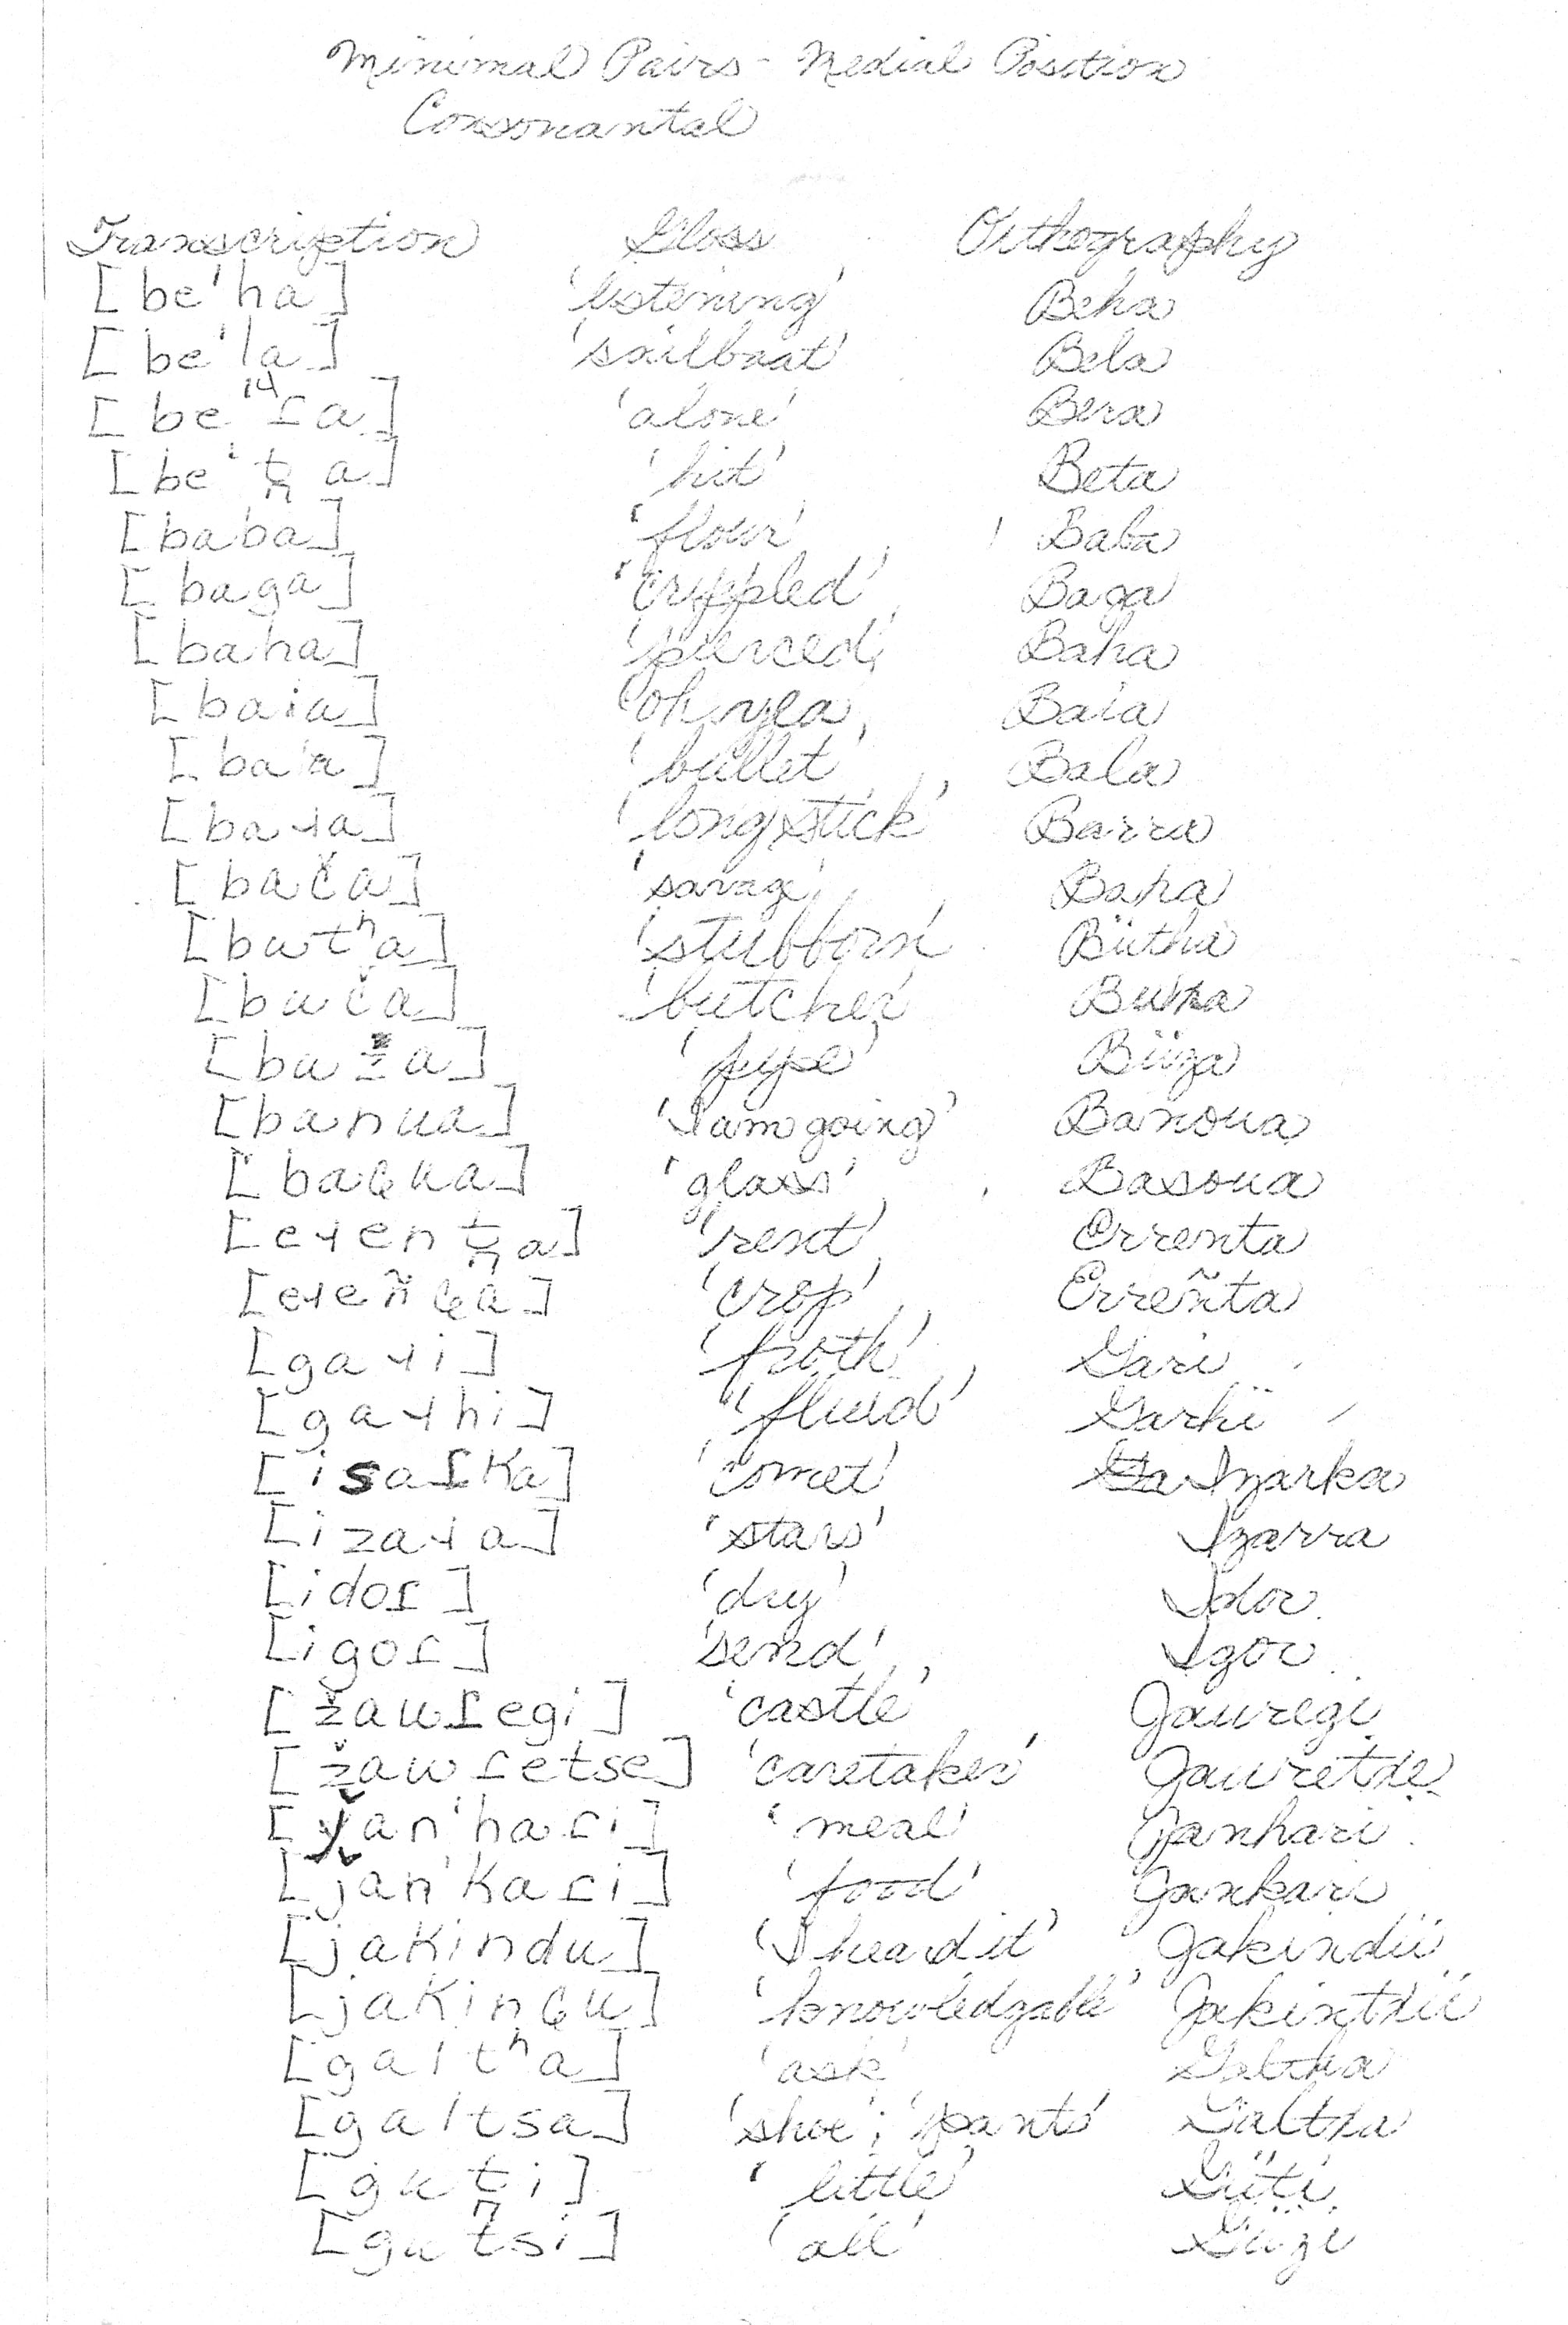 Minimal Pairs - Medial Position
Consonantal
Transcription Gloss Orthography
[be'ha] 'listening' Beha
[be'la] 'sailboat' Bela
[be'ɾa] 'alone' Bera
[be't̪a] 'hit' Beta
[baba] 'flour' Baba
[baga] 'crippled' Baga
[baha] 'pierced' Baha
[baia] 'oh yea' Baia
[bala] 'bullet' Bala
[baɹa] 'long stick' Barra
[bača] 'savage'
[butʰa] 'stubborn' Bütha
[buča] 'butcher'
[buža] 'pipe' Büza
[banua] 'I am going' Banoua
'glass' Basoua
[eɹent̪a] 'rent' Errenta
'crop' Erreñta
[gaɹi] 'froth' Gari
[gaɹhi] 'fluid' Garhi
[isaɾka] 'comet' Ga Izarka
[izaɹa] 'stars' Izarra
[idoɾ] 'dry' Idor
[igoɾ] 'send' Igor
[žauɾegi] 'castle' Jauregi
[žauɾetse] 'caretaker' Jauretxe
[ǰan'haɾi] 'meal' Janhari
[ǰan'kaɾi] 'food' Jankari
[jakindu] 'I heard it' Jakindü
'knowledgable' Jakintxü
[galtʰa] 'ask' Galtha
[galtsa] 'shoe'; 'pants' Galtxa
[gut̪i] 'little' Güti
[gutsi] 'all' Güzi